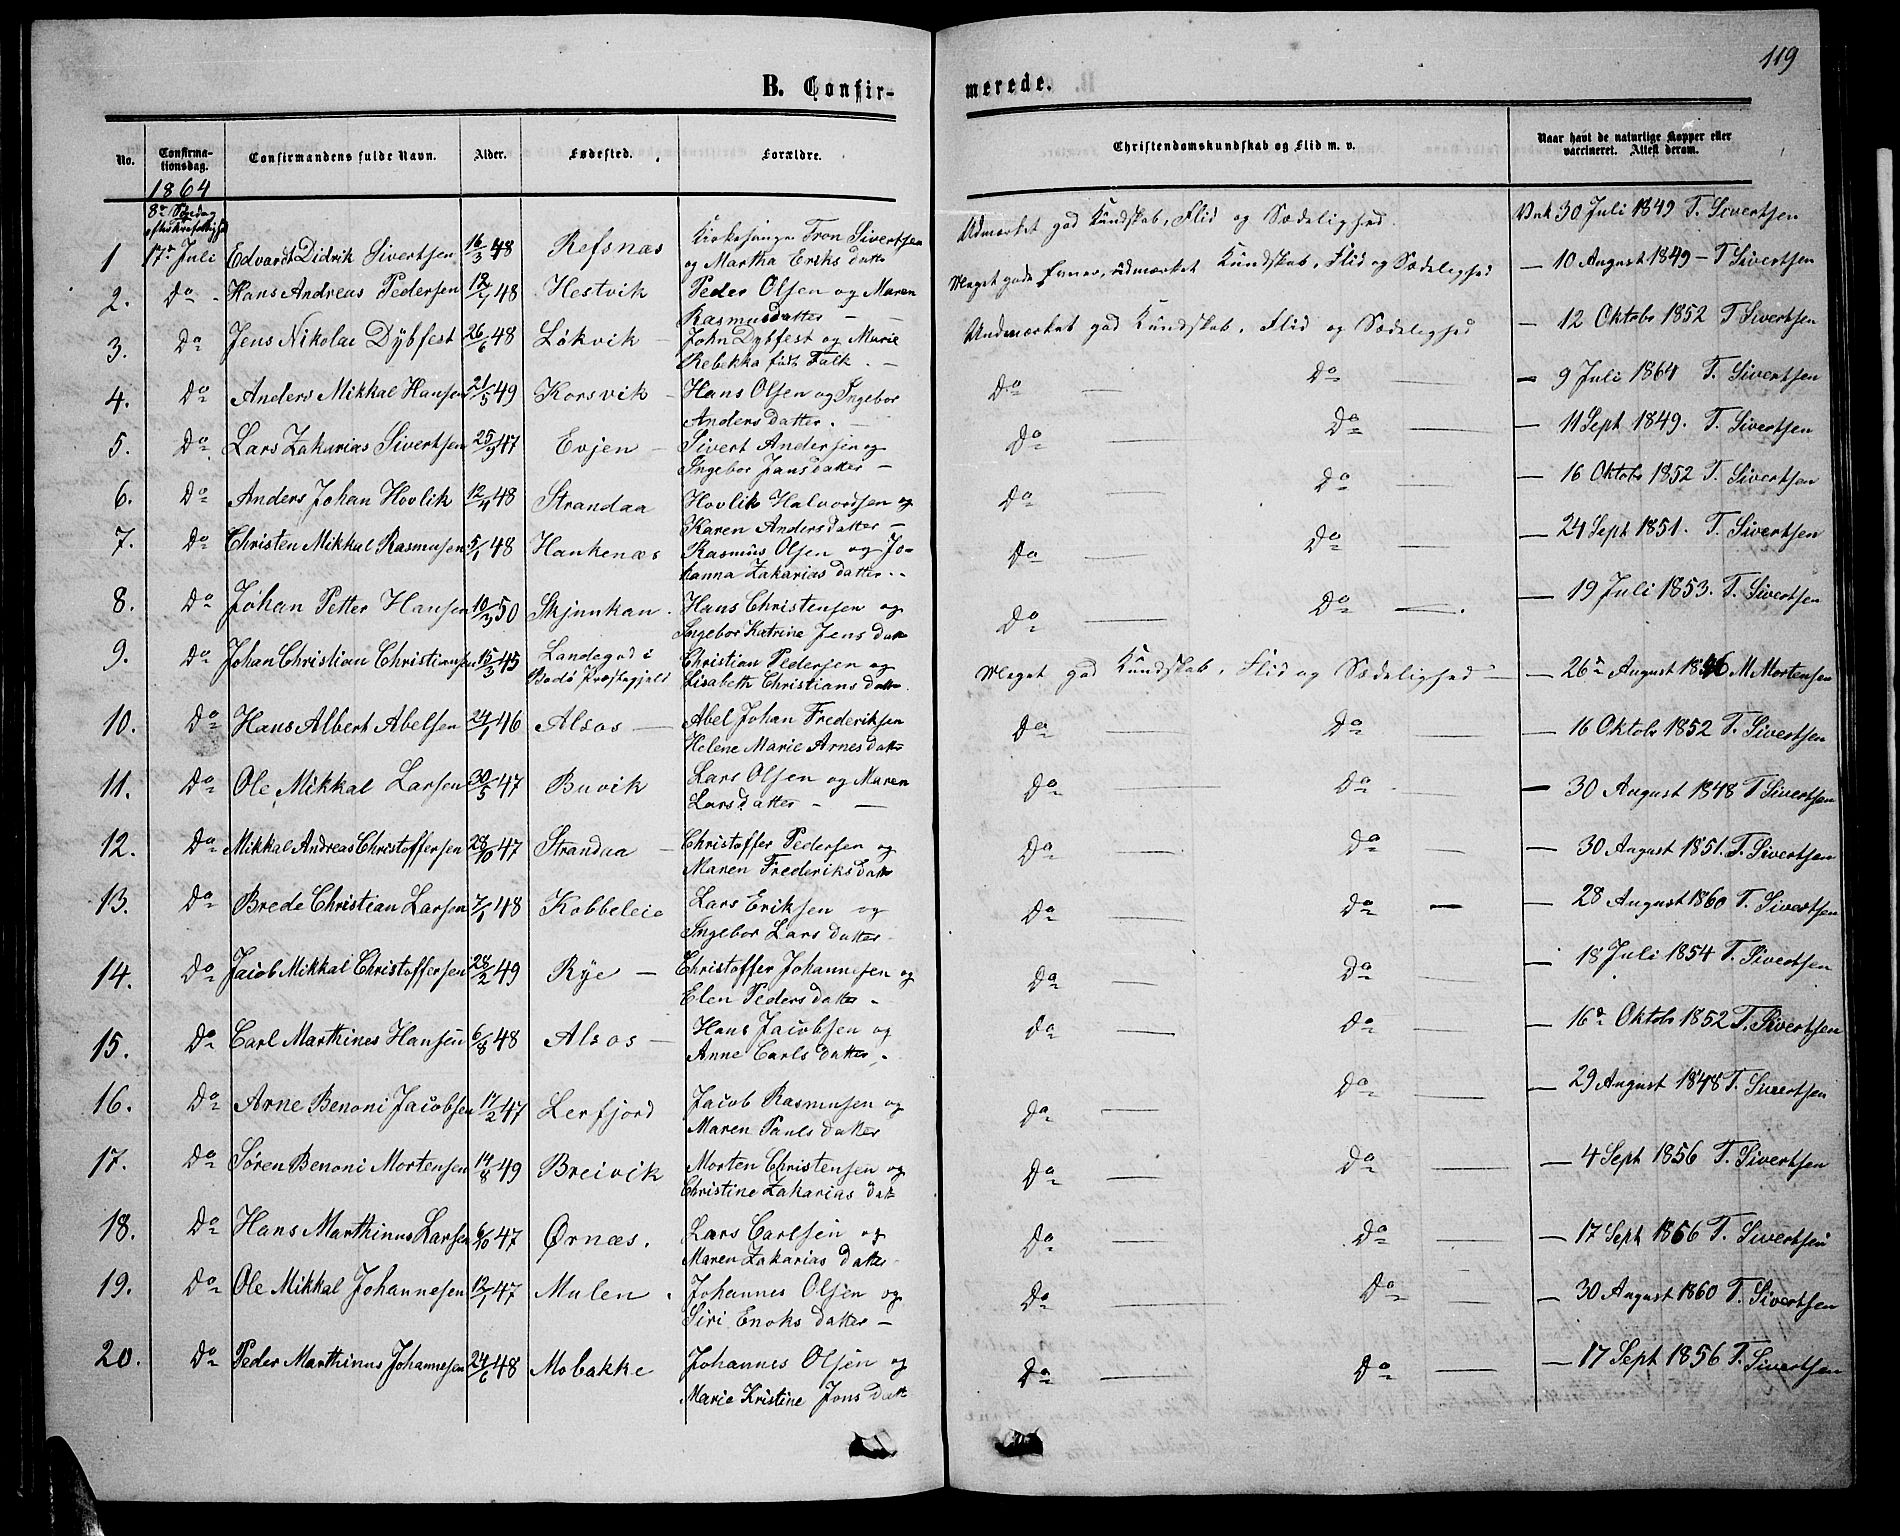 119
B. Confir-
merede.
No.
Confirma-
tionsdag.
Confirmandens fulde Navn.
Alder.
Fødested.
Forældre.
Christendomskundskab og Flid m. v.
Naar havt de naturlige Kopper eller
vaccineret. Attest derom.
1864
8de Søndag
1 17de Juli Edvardt Didrik Sivertsen 16/3 48 Refsnæs Kirkesanger Tron Sivertsen
og Martha Eriksdatter
Udmærket god Kundskab, Flid og Sædelighed. Vak 30 Juli 1849 T. Sivertsen
2. Do Hans Andreas Pedersen 12/1 48 Hestvik Peder Olsen og Maren
Rasmusdatter —
Meget gode Evner, udmærket Kundskab, Flid og Sædelighed — 10 August 1849 — T Sivertsen
3. Do Jens Nikolai Dybfest 26/6 48 Løkvik — John Dybfest og Marie
Rebekka født Falk. —
Undmærket god Kundskab, Flid og Sædelighed — 12 Oktobr 1852 T Sivertsen
4. Do Anders Mikkal Hansen 21/5 49 Korsvik — Hans Olsen og Ingebor
Andersdatter. —
Do — Do — — 9 Juli 1864 T. Sivertsen
5. Do Lars Zakarias Sivertsen 25/9 47 Evjen — Sivert Andersen og
Ingebor Jansdatter —
Do — Do — — 11 Sept 1849. T. Sivertsen
6. Do Anders Johan Hovlik 12/4 48 Strandaa Hovlik Halvordsen og
Karen Andersdatter —
Do — Do — — 16 Oktobr 1852 T. Sivertsen
7. Do Christen Mikkal Rasmusen 5/1 48 Hankenæs Rasmus Olsen og Jo-
hanna Zakariasdatter..
Do — Do — — 24 Sept 1851. T. Sivertsen
8. Do Johan Petter Hansen 10/9 50 Skjnnkan. Hans Christensen og
Ingebor Katrine Jensdatt
Do — Do — — 19 Juli 1853. T. Sivertsen
9. Do Johan Christian Christiansen 15/3 45 Landegod i
Bodø Præstegjeld Christian Pedersen og
Lisabeth Christiansdatter.
Meget god Kundskab, Flid og Sædelighed — — 26de August 1846 M Mortensen
10. Do Hans Albert Abelsen 24/1 46 Alsos — Abel Johan Frederiksen
Helene Marie Arnesdatter
Do — Do — — 16 Oktobr 1852 T. Sivertsen
11. Do Ole Mikkal Larsen 30/5 47 Buvik Lars Olsen og Maren
Larsdatter — —
Do — Do — — 30 August 1848 T Sivertsen
12. Do Mikkal Andreas Christoffersen 28/10 47 Strandaa — Christoffer Pedersen og
Maren Frederiksdatter
Do — Do — — 30 August 1851. T. Sivertsen
13. Do Brede Christian Larsen 7/1 48 Kobbeleie Lars Eriksen og
Ingebor Larsdatter
Do — Do — — 28 August 1860 T. Sivertsen
14. Do Jacob Mikkal Christoffersen 28/2 49 Rÿe — Christoffer Johannesen og
Elen Pedersdatter.
Do — Do — — 18 Juli 1854 T. Sivertsen
15. Do Carl Marthines Hansen 6/8 48 Alsos — Hans Jacobsen og
Anne Carlsdatter.
Do — Do — — 16de Oktobr 1852 T. Sivertsen
16. Do Arne Benoni Jacobsen 17/2 47 Lerfjord Jacob Rasmusen og
Maren Paulsdatter
Do — Do — — 29 August 1848 T. Sivertsen
17. Do Søren Benoni Mortensen 14/8 49 Breivik Morten Christensen og
Christine Zakariasdatt
Do — Do — — 4 Sept 1856 T. Sivertsen
18. Do Hans Marthinus Larsen 6/10 47 Ørnæs. Lars Carlsen og
Maren Zakariasdatter
Do — Do — — 17 Sept 1856 T. Sivertsen
19. Do Ole Mikkal Johannesen 12/1 47 Mulen. Johannes Olsen og
Siri Enoksdatter —
Do — Do — — 30 August 1860 T. Sivertsen
20. Do Peder Marthinus Johannesen 24/6 48 Mobakke Johannes Olsen og
Marie Kristine Jonsdatt
Do — Do — — 17 Sept 1856 T. Sivertsen